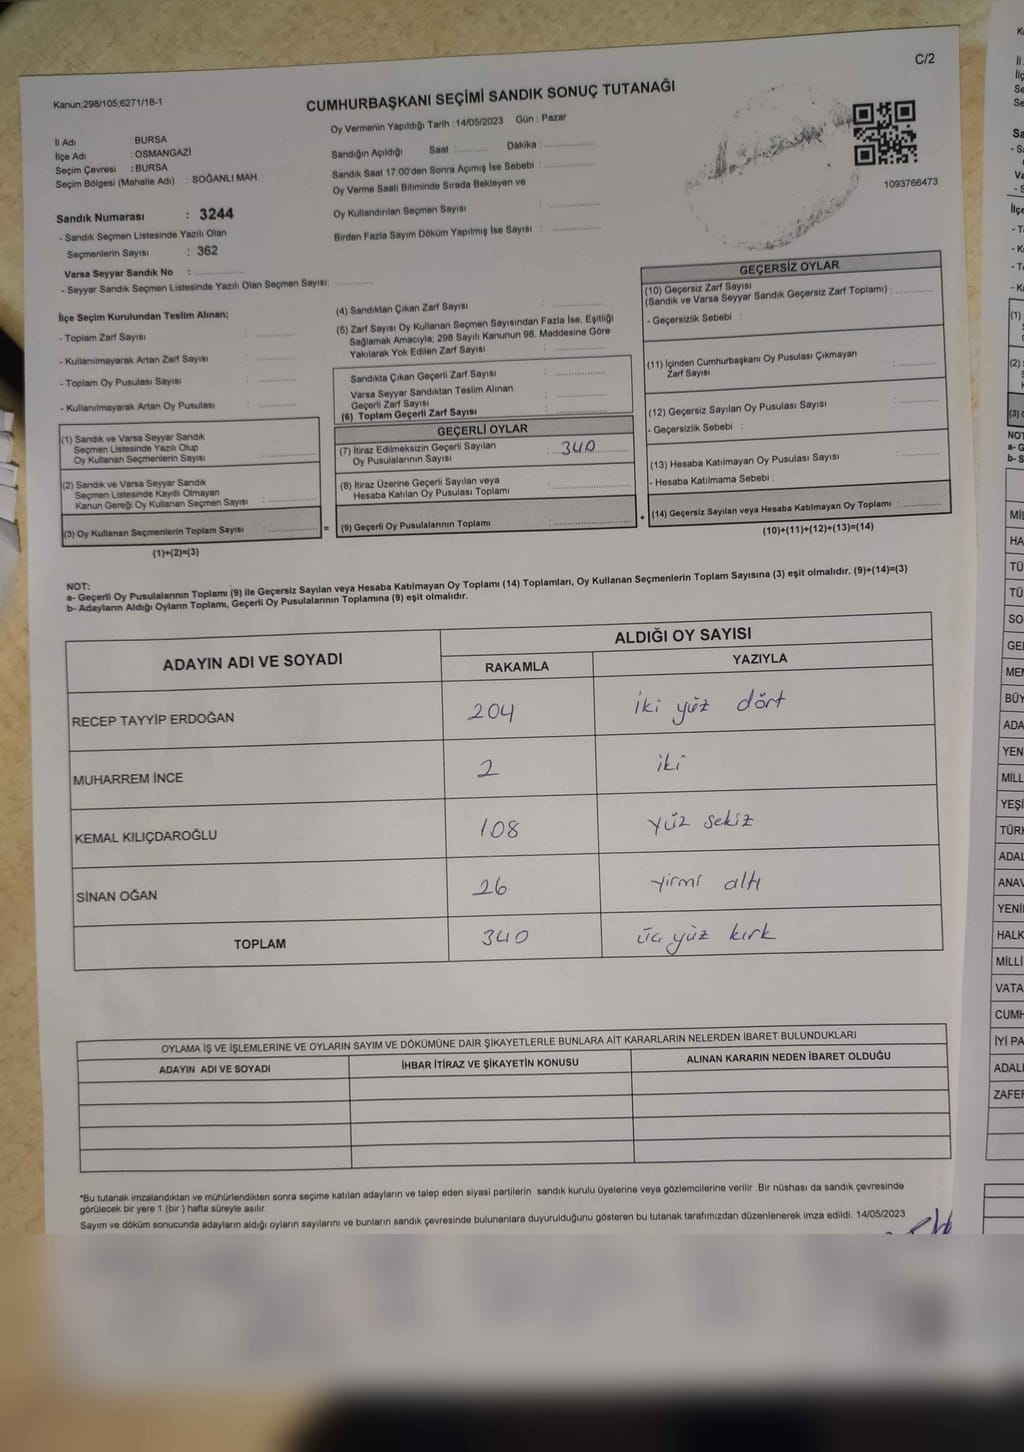 C/2
Kanun;298/105;6271/18-1
CUMHURBAŞKANI SEÇİMİ SANDIK SONUÇ TUTANAĞI
Oy Vermenin Yapıldığı Tarih : 14/05/2023 Gün : Pazar
İl Adı : BURSA
İlçe Adı : OSMANGAZİ
Seçim Çevresi : BURSA
Seçim Bölgesi (Mahalle Adı) : SOĞANLI MAH.
Sandık Numarası : 3244
- Sandık Seçmen Listesinde Yazılı Olan
Seçmenlerin Sayısı : 362
Varsa Seyyar Sandık No : ..............
- Seyyar Sandık Seçmen Listesinde Yazılı Olan Seçmen Sayısı: ..............
Sandığın Açıldığı Saat : .......... Dakika : ..............
Sandık Saat 17.00'den Sonra Açımış İse Sebebi : ..............
Oy Verme Saati Bitiminde Sırada Bekleyen ve
Oy Kullandırılan Seçmen Sayısı : ..............
Birden Fazla Sayım Döküm Yapılmış İse Sayısı : ..............
1093766473
İlçe Seçim Kurulundan Teslim Alınan;
- Toplam Zarf Sayısı : ..............
- Kullanılmayarak Artan Zarf Sayısı : ..............
- Toplam Oy Pusulası Sayısı : ..............
- Kullanılmayarak Artan Oy Pusulası : ..............
(1) Sandık ve Varsa Seyyar Sandık
Seçmen Listesinde Yazılı Olup
Oy Kullanan Seçmenlerin Sayısı : ..............
(2) Sandık ve Varsa Seyyar Sandık
Seçmen Listesinde Kayıtlı Olmayan
Kanun Gereği Oy Kullanan Seçmen Sayısı : ..............
(3) Oy Kullanan Seçmenlerin Toplam Sayısı : ..............
(1)+(2)=(3)
(4) Sandıktan Çıkan Zarf Sayısı : ..............
(5) Zarf Sayısı Oy Kullanan Seçmen Sayısından Fazla İse, Eşitliği
Sağlamak Amacıyla; 298 Sayılı Kanunun 98. Maddesine Göre
Yakılarak Yok Edilen Zarf Sayısı : ..............
Sandıkta Çıkan Geçerli Zarf Sayısı : ..............
Varsa Seyyar Sandıktan Teslim Alınan
Geçerli Zarf Sayısı : ..............
(6) Toplam Geçerli Zarf Sayısı : ..............
GEÇERLİ OYLAR
(7) İtiraz Edilmeksizin Geçerli Sayılan
Oy Pusulalarının Sayısı : 340
(8) İtiraz Üzerine Geçerli Sayılan veya
Hesaba Katılan Oy Pusulası Toplamı : ..............
= (9) Geçerli Oy Pusulalarının Toplamı : ..............
GEÇERSİZ OYLAR
(10) Geçersiz Zarf Sayısı
(Sandık ve Varsa Seyyar Sandık Geçersiz Zarf Toplamı) : ..........
- Geçersizlik Sebebi :
(11) İçinden Cumhurbaşkanı Oy Pusulası Çıkmayan
Zarf Sayısı : ..........
(12) Geçersiz Sayılan Oy Pusulası Sayısı : ..........
- Geçersizlik Sebebi :
(13) Hesaba Katılmayan Oy Pusulası Sayısı : ..........
- Hesaba Katılmama Sebebi :
+ (14) Geçersiz Sayılan veya Hesaba Katılmayan Oy Toplamı : ..........
(10)+(11)+(12)+(13)=(14)
NOT:
a- Geçerli Oy Pusulalarının Toplamı (9) ile Geçersiz Sayılan veya Hesaba Katılmayan Oy Toplamı (14) Toplamları, Oy Kullanan Seçmenlerin Toplam Sayısına (3) eşit olmalıdır. (9)+(14)=(3)
b- Adayların Aldığı Oyların Toplamı, Geçerli Oy Pusulalarının Toplamına (9) eşit olmalıdır.
ADAYIN ADI VE SOYADI ALDIĞI OY SAYISI
RAKAMLA YAZIYLA
RECEP TAYYİP ERDOĞAN 204 iki yüz dört
MUHARREM İNCE 2 iki
KEMAL KILIÇDAROĞLU 108 yüz sekiz
SİNAN OĞAN 26 yirmi altı
TOPLAM 340 üç yüz kırk
OYLAMA İŞ VE İŞLEMLERİNE VE OYLARIN SAYIM VE DÖKÜMÜNE DAİR ŞİKAYETLERLE BUNLARA AİT KARARLARIN NELERDEN İBARET BULUNDUKLARI
ADAYIN ADI VE SOYADI İHBAR İTİRAZ VE ŞİKAYETİN KONUSU ALINAN KARARIN NEDEN İBARET OLDUĞU
*Bu tutanak imzalandıktan ve mühürlendikten sonra seçime katılan adayların ve talep eden siyasi partilerin sandık kurulu üyelerine veya gözlemcilerine verilir .Bir nüshası da sandık çevresinde
görülecek bir yere 1 (bir ) hafta süreyle asılır.
Sayım ve döküm sonucunda adayların aldığı oyların sayılarını ve bunların sandık çevresinde bulunanlara duyurulduğunu gösteren bu tutanak tarafımızdan düzenlenerek imza edildi. 14/05/2023